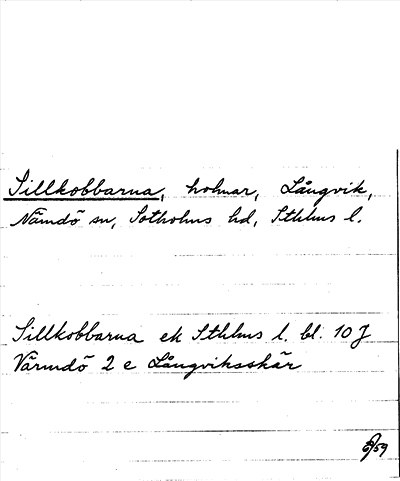 Sillkobbarna, holmar, Långvik,
Nämdö sn, Sotholms hd, Sthlms l.
Sillkobbarna ek Sthlms l. bl. 10 J
Värmdö 2 e Långviksskär